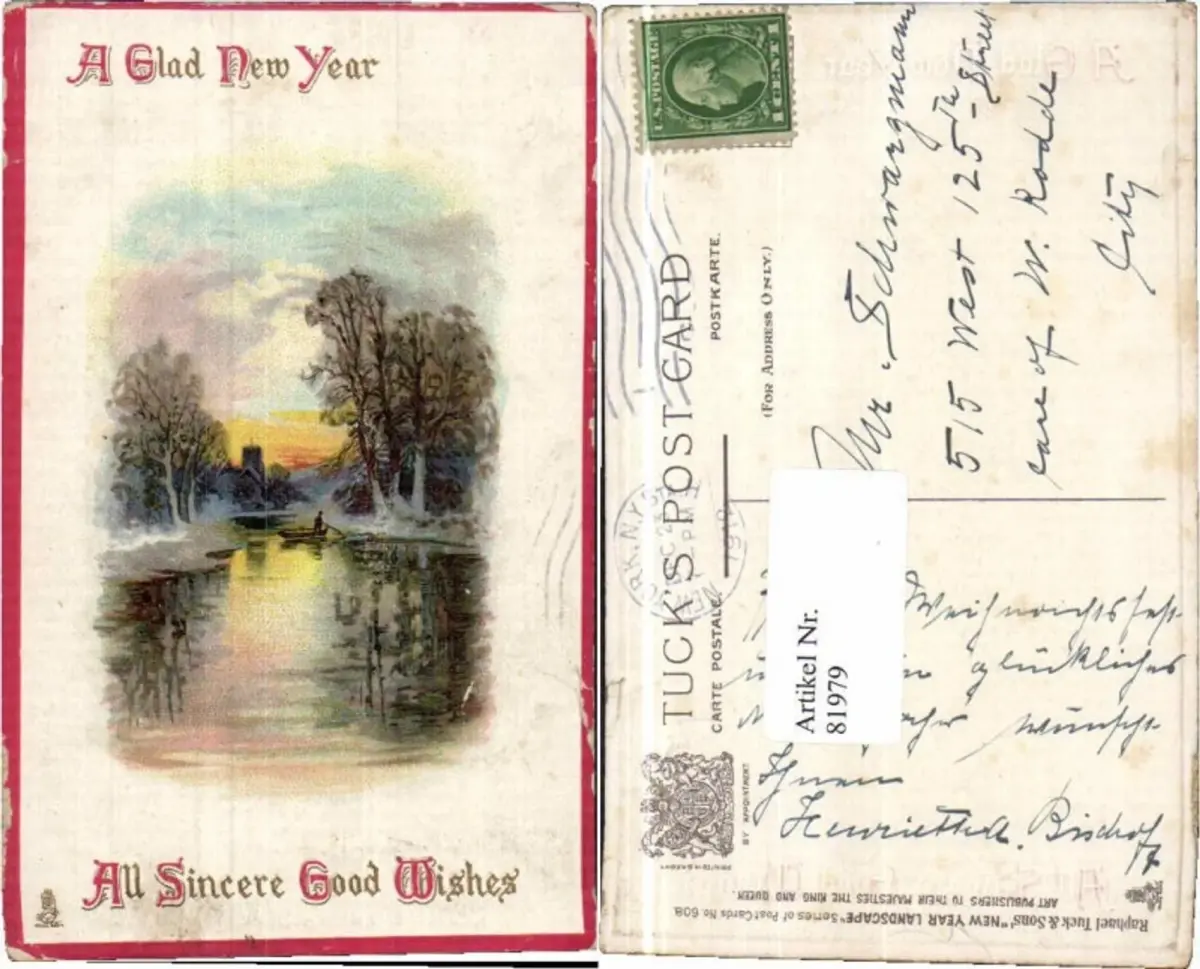 A Glad New Year
All Sincere Good Wishes
U.S. POSTAGE
1 CENT 1
TUCK'S POST CARD
CARTE POSTALE.
POSTKARTE.
(FOR ADDRESS ONLY.)
NEW YORK, N.Y.
DEC 23
PM
Mr. Schwarzmann
515 West 125th Street
care of W. Rodde
City
Artikel Nr.
81979
Weihnachtsfest
glückliches
wünscht
Ihnen
Henrietta Bischoff
BY APPOINTMENT
Raphael Tuck & Sons' "NEW YEAR LANDSCAPE" Series of Post Cards No. 608.
ART PUBLISHERS TO THEIR MAJESTIES THE KING AND QUEEN.